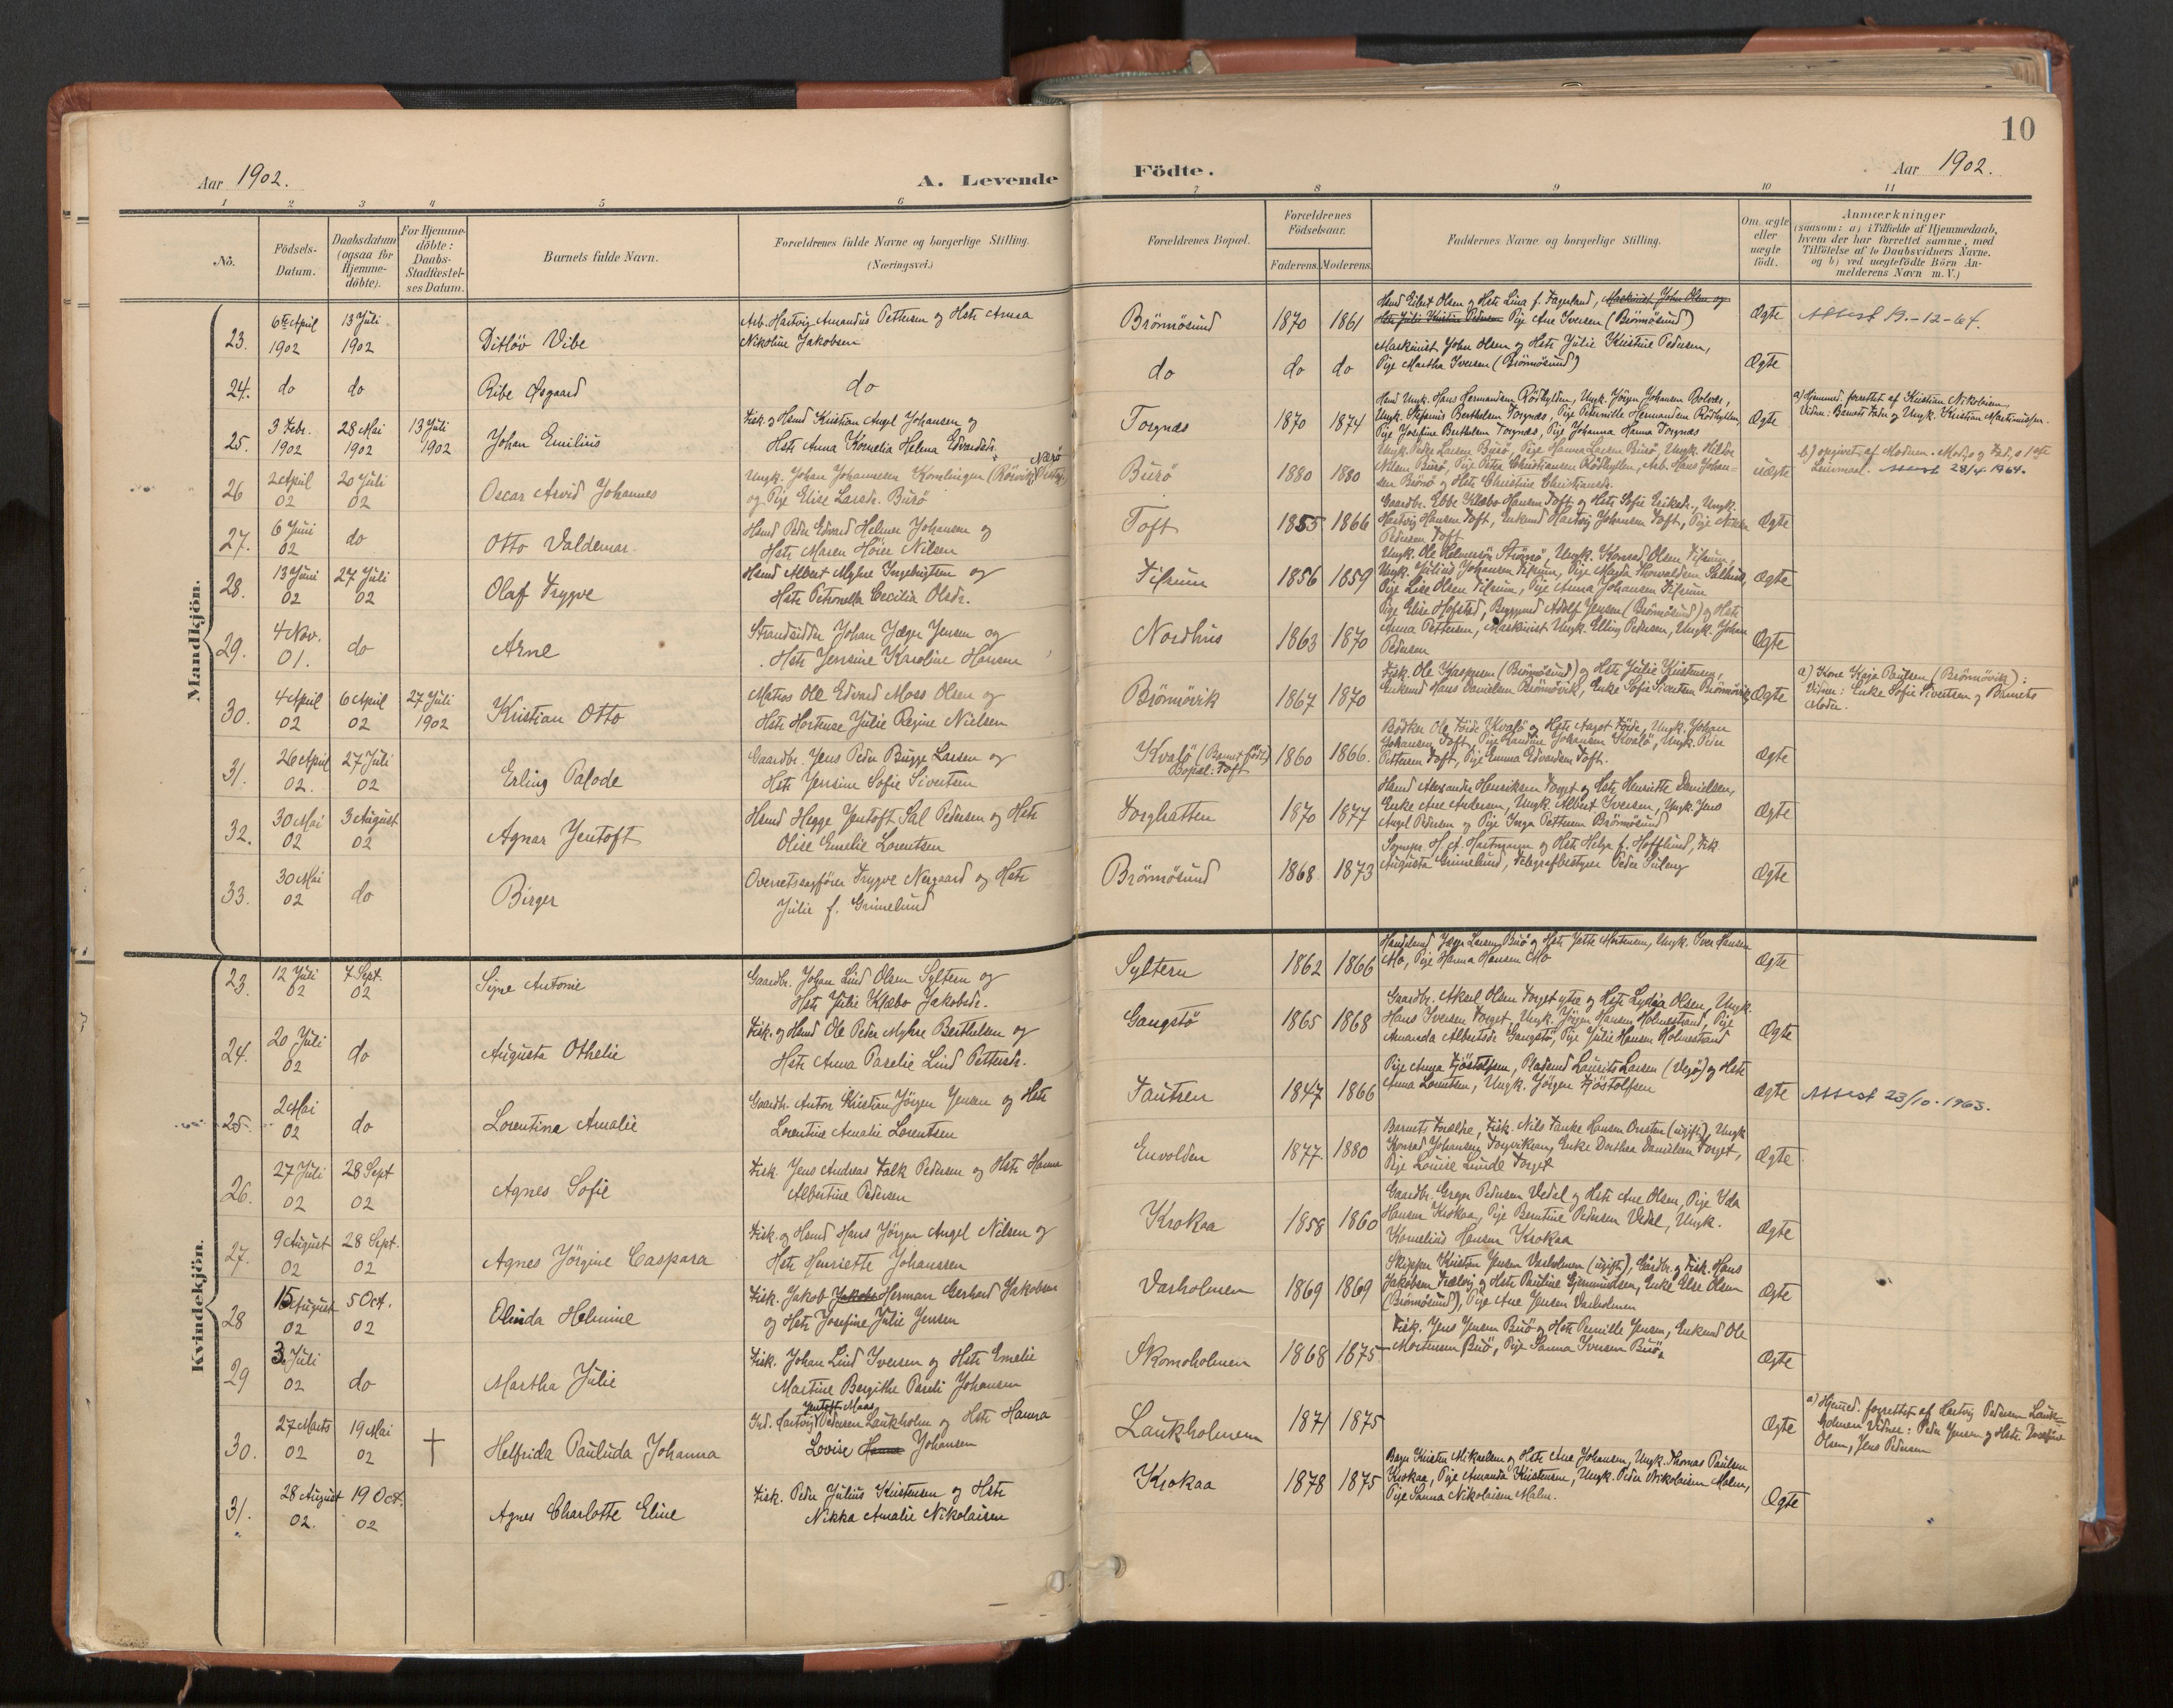 10
Aar 1902.
A. Levende Födte.
Aar 1902.
1 2 3 4 5 6 7 8 9 10 11
No.
Födsels-Datum.
Daabsdatum (ogsaa for Hjemme-döbte).
For Hjemme-döbte: Daabs-Stadfæstel-ses Datum.
Barnets fulde Navn.
Forældrenes fulde Navne og borgerlige Stilling.
(Næringsvei.)
Forældrenes Bopæl.
Forældrenes Födselsaar.
Faderens. Moderens.
Faddernes Navne og borgerlige Stilling.
Om ægte eller uægte födt.
Anmærkninger
(saasom: a) i Tilfælde af Hjemmedaab,
hvem der har forrettet samme, med
Tilföielse af to Daabsvidners Navne.
og b) ved uægtefödte Börn An-
melderens Navn m. V.)
Mandkjön.
23. 6te April 1902 13 Juli 1902 Ditlöv Vibe
Arb. Hartvig Amandus Pettersen og Hstr Anna
Nikoline Jakobsen
Brönnösund 1870 1861
Hsmd Eilert Olsen og Hstr Lina f. Fagerland, Maskinist John Olsen og
Hstr Juli Kristine Pedersen Pige Ane Iversen (Brönnösund)
Ægte Attest 19.-12-64.
24. do do Ribe Øsgaard do
do do do
Maskinist John Olsen og Hstr Julie Kristine Pedersen,
Pige Martha Iversen (Brönnösund)
Ægte
25. 3 Febr. 1902 28 Mai 1902 13 Juli 1902 Johan Emilius
Fisk. og Hsmd Kristian Angel Johansen og
Hstr Anna Kornelia Helena Edvardsdr.
Torgnæs 1870 1874
Ungk. Hans Hermandsen Rödhylten, Ungk. Jörgen Johansen Bolvær,
Ungk. Stefanus Berthelsen Torgnæs, Pige Peternille Hermandsen Rödhylten,
Pige Josefine Berthelsen Torgnæs, Pige Johanna Hanna Torgnæs
Ægte
a) Hjemmed. forrettet af Kristian Nikolaisen
Vidner: Barnets Fader og Ungk. Kristian Martinussen.
26 2 April 02 20 Juli 02 Oscar Arvid Johannes
Ungk. Johan Johannesen Komlingen (Rörvik, Nærö
og Pige Elise Larsdr. Burö
Burö 1880 1880
Ungk. Peder Larsen Burö, Pige Hanna Larsen Burö, Ungk. Hilbe
Nilsen Burö, Pige Petra Christiansen Rödhylten, Arb. Hans Johan-
sen Brönö og Hstr Christine Christiansdr.
uægte
b) opgivet af Moderen. Modr. og Fad. s 1ste
Leiermaal. Attest 28/4 1964.
27. 6 Juni 02 do Otto Valdemar.
Hsmd Peder Edvard Helmer Johansen og
Hstr Maren Höier Nilsen
Toft 1855 1866
Gaardbr. Ebbe Klæbo Hansen Toft og Hstr Sofie Eriksdr., Ungk.
Hartvig Hansen Toft, Enkemd Hartvig Johansen Toft, Pige Nikka
Pedersen Toft
Ægte
28. 13 Juni 02 27 Juli 02 Olaf Trygve
Hsmd Albert Myhre Ingebrigtsen og
Hstr Petronella Cecilia Olsdr.
Tilrum 1856 1859
Ungk. Ole Helmersön Strömö, Ungk. Konrad Olsen Tilrum,
Ungk. Julius Johansen Tilrum, Pige Magda Thorvaldsen Salhus,
Pige Lise Olsen Tilrum, Pige Anna Johansen Tilrum
Ægte
29. 4 Nov. 01. do Arne
Strandsidder Johan Jæger Jensen og
Hstr Jensine Karoline Hansen
Nordhus 1863 1870
Pige Elise Hofsted, Byggmd Adolf Jensen (Brönnösund) og Hstr
Anna Pettersen, Maskinist Ungk. Elling Pedersen, Ungk. Johan
Pedersen
Ægte
30. 4 April 02 6 April 02 27 Juli 1902 Kristian Otto
Matros Ole Edvard Moss Olsen og
Hstr Hortense Julie Regine Nielsen
Brönnövik 1867 1870
Fisk. Ole Kaspersen (Brönnösund) og Hstr Julie Kristensen,
Enkemd Hans Danielsen Brönnövik, Enke Sofie Sivertsen Brönnövik
Ægte
a) Kone Kaja Paulsen (Brönnövik):
Vidner: Enke Sofie Sivertsen og Barnets
Moder.
31. 26 April 02. 27 Juli 02 Erling Palode
Gaardbr. Jens Peder Bugge Larsen og
Hstr Jensine Sofie Sivertsen
Kvalö (Barnet födt)
Bopæl: Toft
1860 1866.
Bödker Ole Föide Kvalö og Hstr Aagot Föide, Ungk. Johan
Johansen Toft, Pige Randine Johansen Kvalö, Ungk. Peder
Pettersen Toft, Pige Emma Edvardsen Toft.
Ægte
32. 30 Mai 02 3 August 02 Agnar Jentoft
Hsmd Hegge Jentoft Sal Pedersen og Hstr
Olise Emelie Lorentsen
Torghatten 1870 1877
Hsmd Alexander Henriksen Torget og Hstr Henriette Danielsen,
Enke Ane Andersen, Ungk. Albert Iversen, Ungk. Jens
Angel Pedersen og Pige Inga Pettersen Brönnösund
Ægte
33. 30 Mai 02 do Birger
Overretssagförer Trygve Nergaard og Hstr
Julie f. Grimelund
Brönnösund 1868 1873
Sognpr. H. A. Hartmann og Hstr Helga f. Hofflund, Frk.
Augusta Grimelund, Telegrafbestyrer Peder
Ægte
Kvindekjön.
23. 12 Juli 02 7 Sept. 02 Signe Antonie
Gaardbr. Johan Lind Olsen Syltern og
Hstr Julie Klæbo Jakobsdr.
Syltern 1862 1866
Handelsmd Jæger Larsen Burö og Hstr Jette Mortensen, Ungk. Iver Hansen
Mo, Pige Hanna Hansen Mo
Ægte
24. 20 Juli 02 do Augusta Othelie
Fisk. og Hsmd Ole Peder Myhre Berthelsen og
Hstr Anna Paselie Lind Pettersdr.
Gangstö 1865 1868
Gaardbr. Aksel Olsen Torget ytre og Hstr Lydia Olsen, Ungk.
Hans Iversen Torget, Ungk. Jörgen Hansen Holmestrand, Pige
Amanda Albertsdr Gangstö, Pige Julie Hansen Holmestrand
Ægte
25. 2 Mai 02 do Lorentina Amalie
Gaardbr. Anton Kristian Jörgen Jensen og Hstr
Lorentine Amalie Lorentsen
Tautsen 1847 1866
Pige Anna Fjöstolfsen, Pladsmd Laurits Larsen (Vegö) og Hstr
Anna Lorentsen, Ungk. Jörgen Fjöstolfsen
Ægte Attest 23/10-1963.
26. 27 Juli 02 28 Sept 02 Agnes Sofie
Fisk. Jens Andreas Falk Pedersen og Hstr Hanna
Albertine Pedersen
Envolden 1877 1880
Barnets Forældre, Fisk. Nils Tanke Hansen Onsten (ugift), Ungk
Konrad Johansen Torgvikran, Enke Dorthea Danielsen Torget,
Pige Louise Lunde Torget
Ægte
27. 9 August 02 28 Sept. 02 Agnes Jörgine Caspara
Fisk. og Hsmd Hans Jörgen Angel Nilsen og
Hstr Henriette Johanssen
Krokaa 1858 1860
Gaardbr. Greger Pedersen Vedal og Hstr Ane Olsen, Pige Ida
Hansen Krokaa, Pige Berntine Pedersen Vedal, Ungk.
Kornelius Hansen Krokaa
Ægte
28 15 August 02 5 Oct. 02 Olinda Helmine
Fisk. Jakob Jakobs Herman Gerhard Jakobsen
og Hstr Josefine Julie Jensen
Varholmen 1869 1869
Skipper Kristian Jensen Varholmen (ugift), Gårdbr. og Fisk. Hans
Jakobsen Trælvig og Hstr Pauline Gjermundsen, Enke Else Olsen
(Brönnösund), Pige Ane Jensen Varholmen
Ægte
29 3. Juli 02 do Martha Julie
Fisk. Johan Lind Iversen og Hstr Emelie
Martine Bergithe Pareli Johansen
Skomoholmen 1868 1875
Fisk. Jens Jensen Burö og Hstr Pernille Jensen, Enkemd Ole
Mortensen Burö, Pige Sanna Iversen Burö.
Ægte
30. 27 Marts 02 19 Mai 02 † Helfrida Pauluda Johanna
Jentoft Maas
Ind. Hartvig Pedersen Laukholm og Hstr Hanna
Lovise Hanna Johansen
Laukholmen 1871 1875
Ægte
a) Hjemmed. forrettet af Hartvig Pedersen Lauk-
holmen Vidner: Peder Jensen og Hstr Josefine
Olsen, Jens Pedersen
31. 28 August 02. 19 Oct. 02 Agnes Charlotte Eline
Fisk. Peder Julius Kristensen og Hstr
Nikka Amalie Nikolaisen
Krokaa 1878 1875
Kristen Mikaelsen og Hstr Ane Johansen, Ungk. Thomas Paulsen
Krokaa, Pige Amanda Kristensen, Ungk. Peder Nikolaisen Malm,
Pige Sanna Nikolaisen Malm.
Ægte